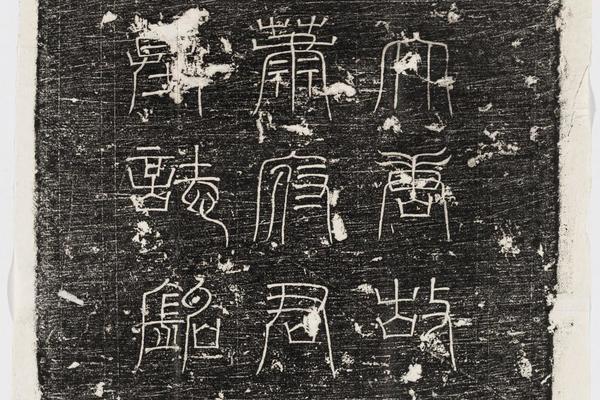 大唐故
蕭府君
墓誌銘